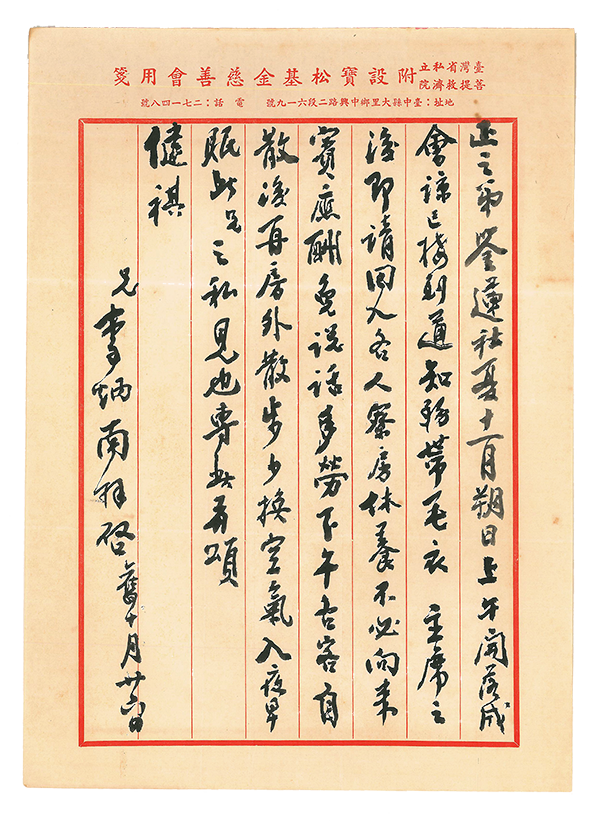 臺灣省私立
菩提救濟院
附設寶松基金慈善會用箋
地址：臺中縣大里鄉中興路二段六一九號 電話：二七一四八號
正之弟鑒蓮社夏十一月朔日上午開落成
會諒已接到通知務帶毛衣 主席之
後即請回入各人寮房休養不必向來
賓應酬免說話多勞下午各客自
散後再房外散步少換空氣入夜早
眠此兄之私見也專此并頌
健祺
兄李炳南拜啓 舊十月廿六日